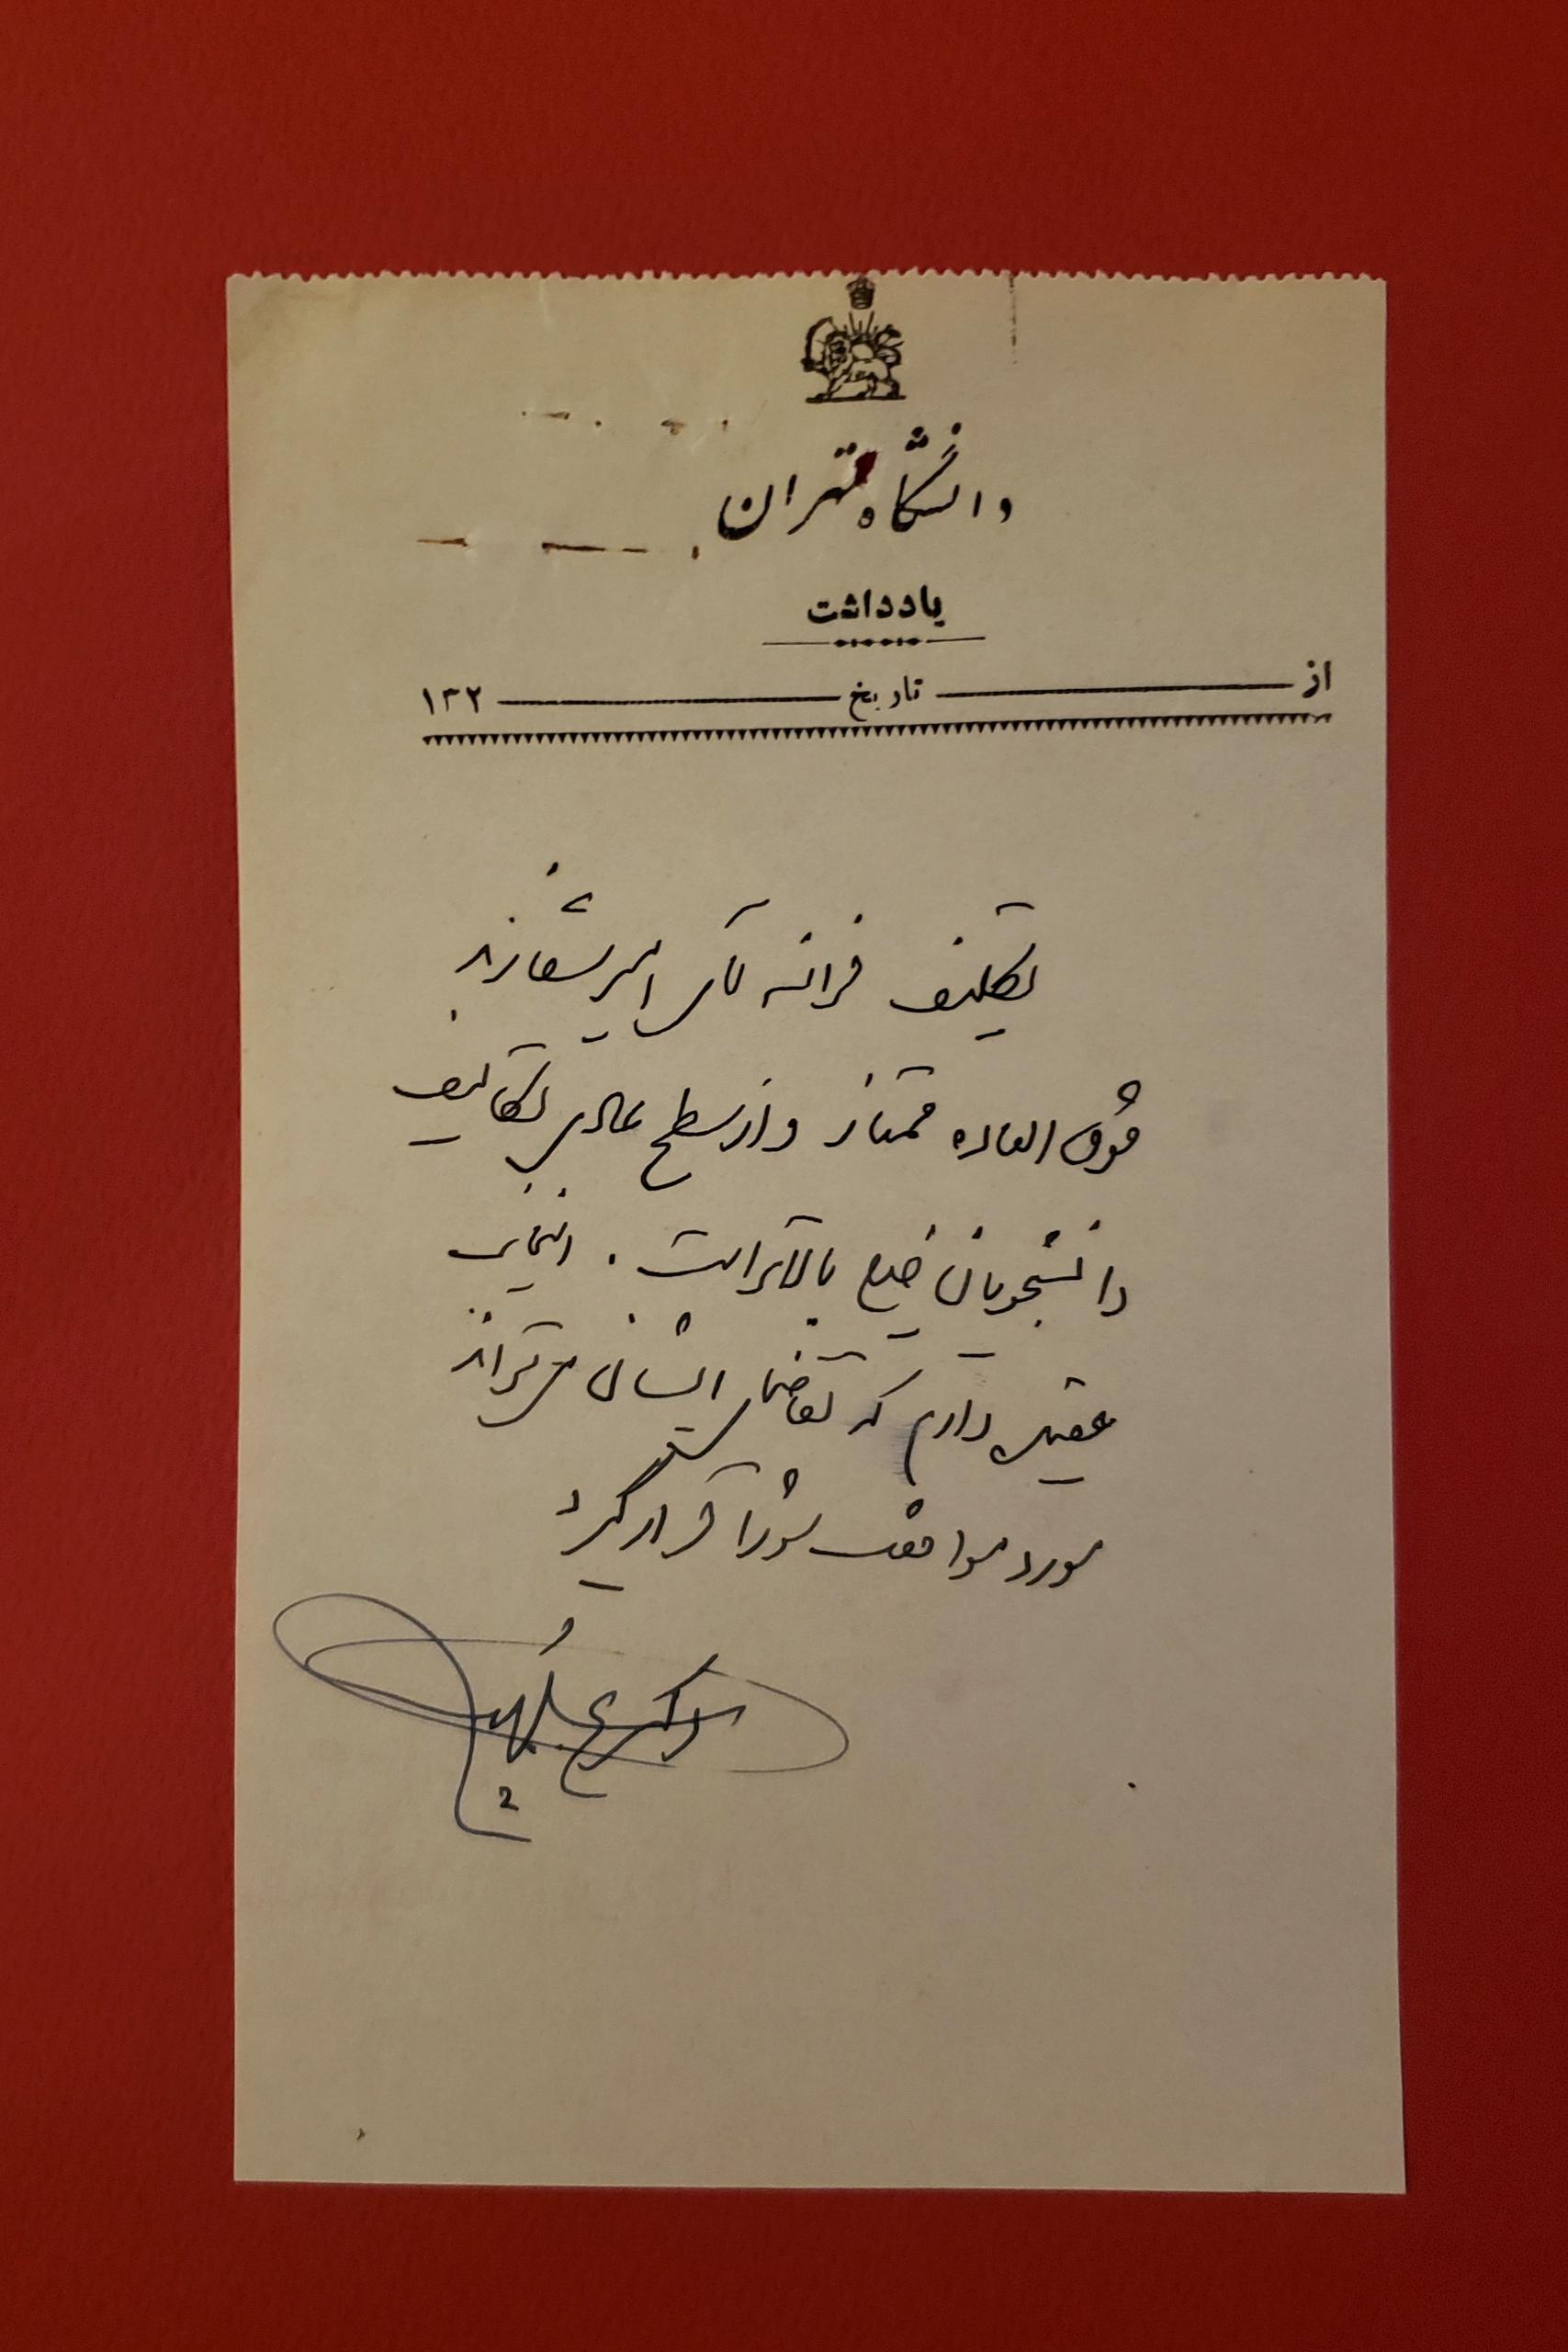 دانشگاه تهران
یادداشت
از تاریخ ۱۳۲
تکلیف فرانسه آقای امیر
فوق العاده ممتاز و از سطح عادی تکالیف
دانشجویان خیلی بالاتر است. اینجانب
عقیده دارم که تقاضای ایشان می تواند
مورد موافقت شورا قرار گیرد
دکتر